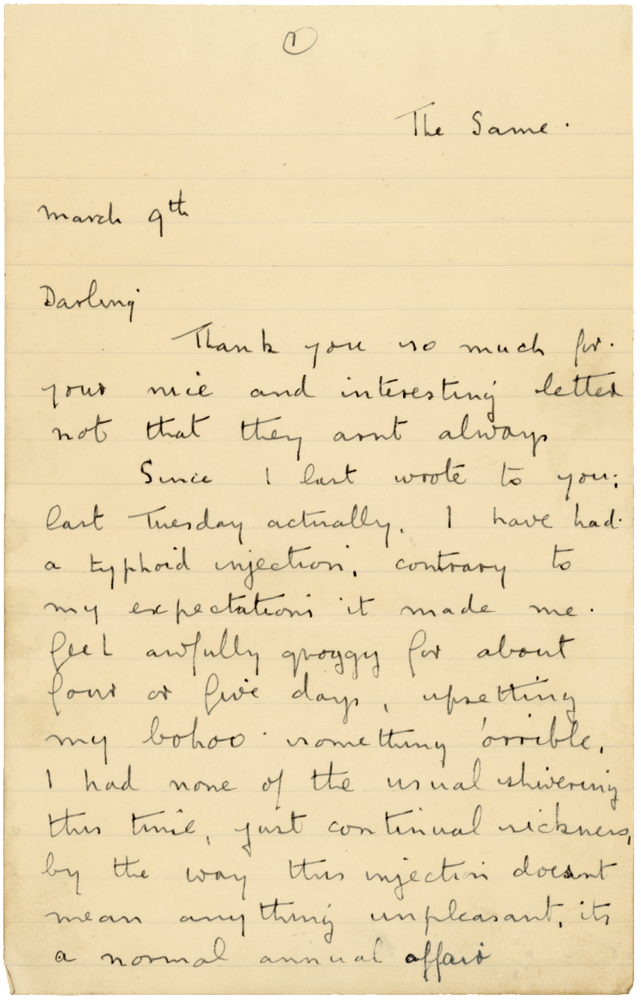 1
The Same.
March 9th
Darling
Thank you so much for
your nice and interesting letter
not that they arnt always
Since I last wrote to you;
last Tuesday actually, I have had
a typhoid injection, contrary to
my expectations it made me
feel awfully groggy for about
four or five days, upsetting
my bohoo something 'orrible,
I had none of the usual shivering
this time, just continual sickness,
by the way this injection doesnt
mean anything unpleasant, its
a normal annual affair